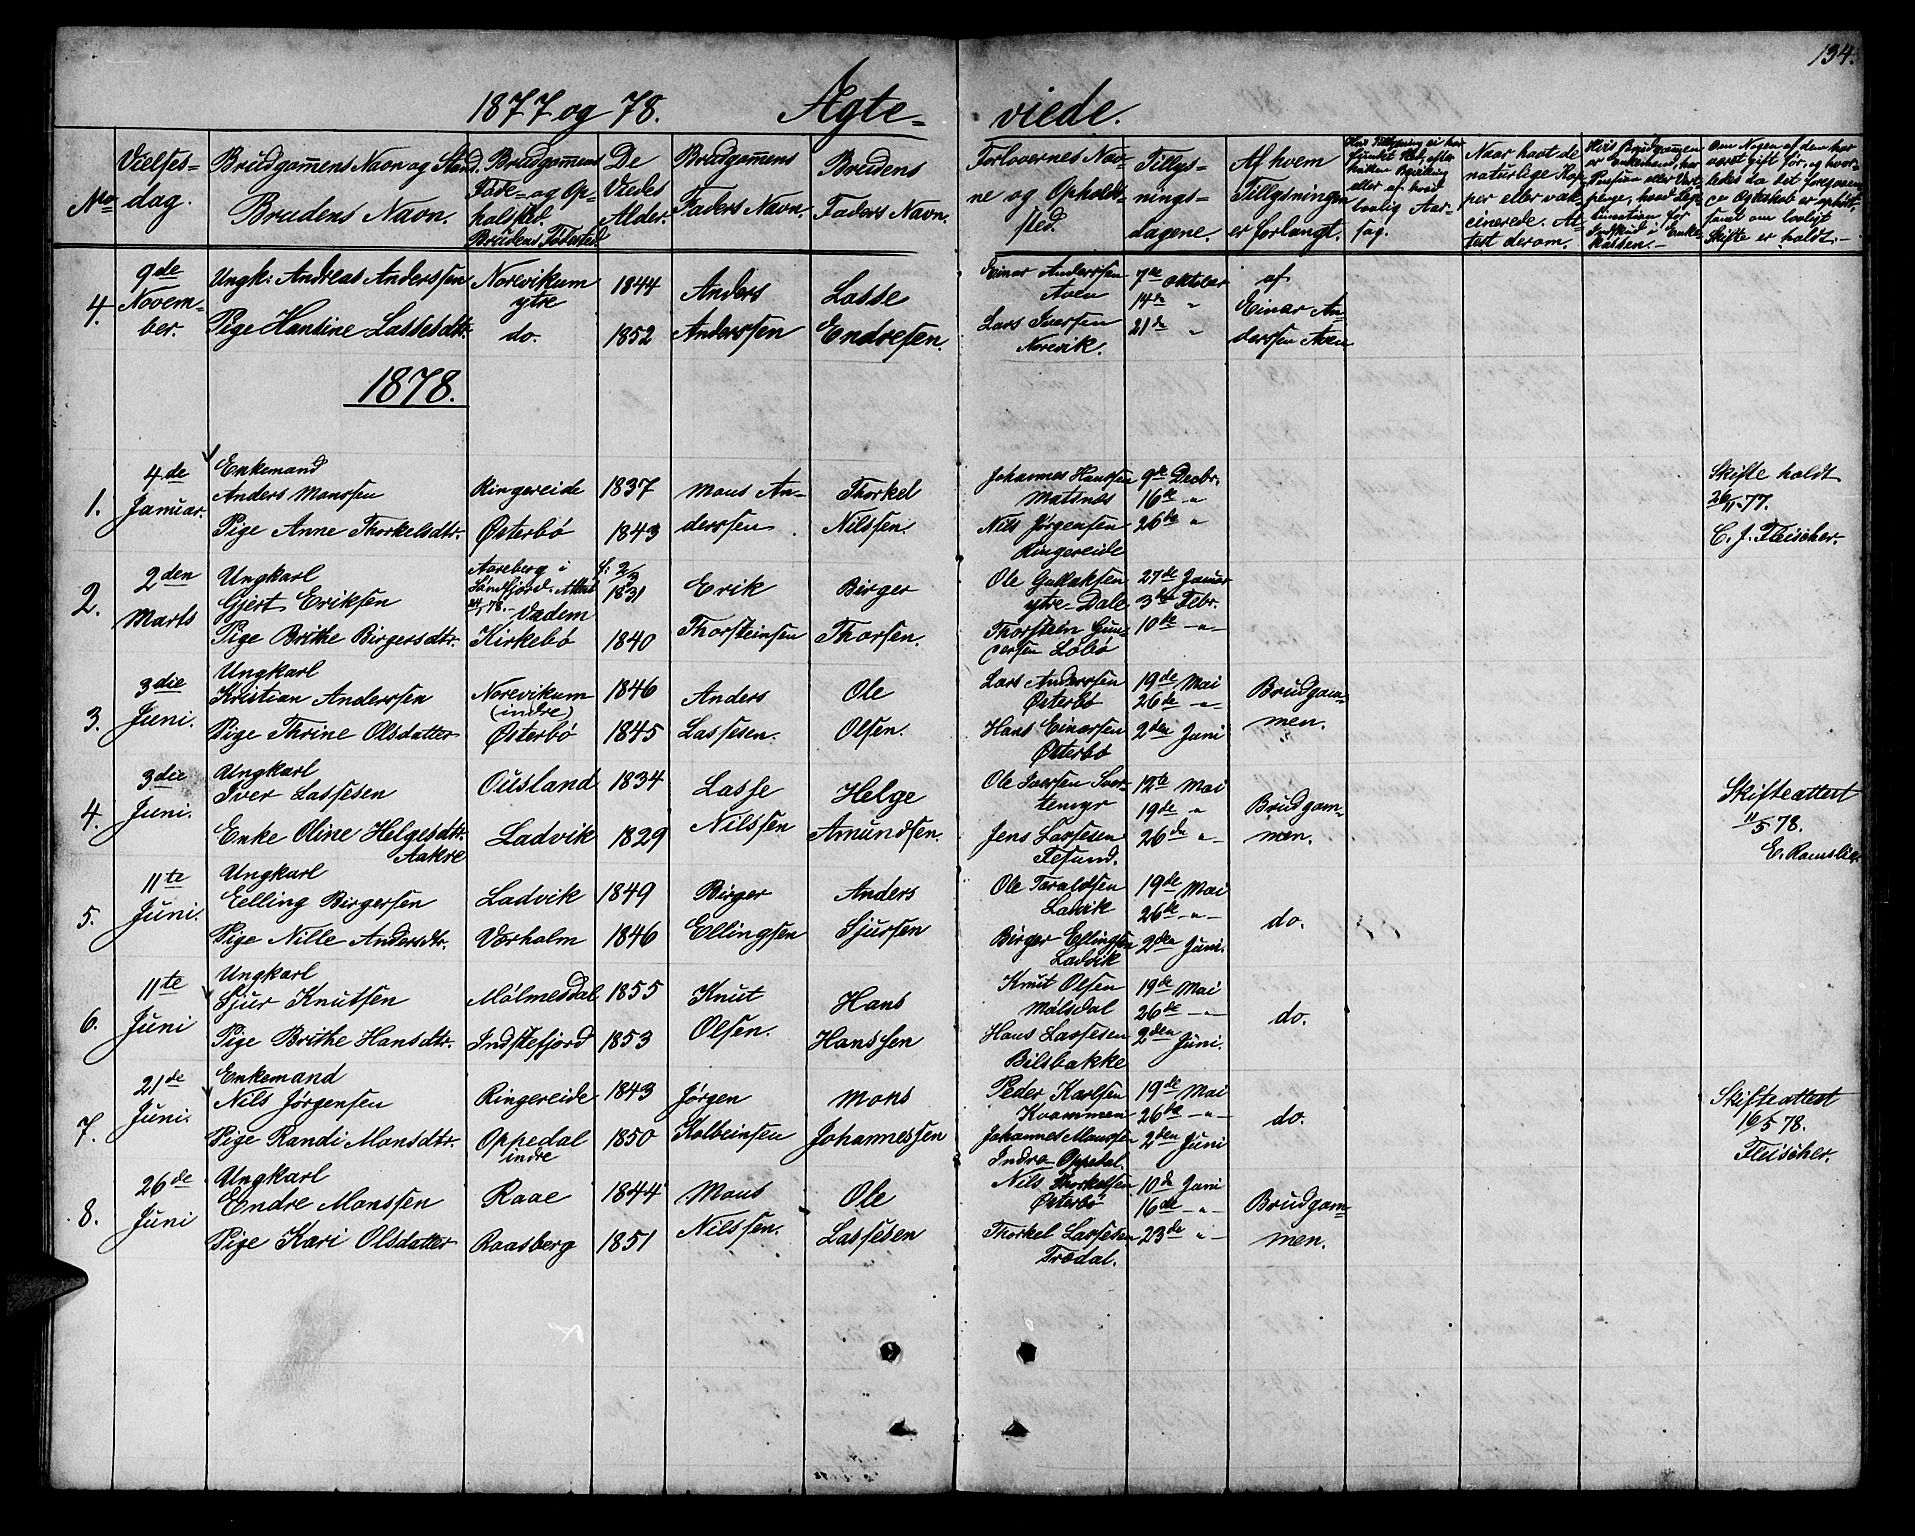 134.
1877 og 78. Ægte- viede.
No
Vielses-
dag.
Brudgom̄ens Navn og Stand.
Brudens Navn.
Brudgom̄ens
Føde- og Op-
holdsted.
Brudens Fødested
De
Viedes
Alder.
Brudgom̄ens
Faders Navn.
Brudens
Faders Navn.
Forlovernes Nav-
ne og Opholds-
sted.
Tillys-
nings-
dagene.
Af hvem
Tillysningen
er forlangt.
Naar havt de
naturlige Kop-
per eller vak-
cinerede. At-
test derom.
Hvis Brudgom̄en
er Enkemand, har
Om Nogen af dem har
været gift før, og hvor-
ledes da det foregaaen-
de Ægteskab er ophævet,
samt om lovligt
Skifte er holdt.
4.
9de
Novem-
ber.
Ungk: Andreas Anderssen
Pige Hansine Lassesdtr.
Norevikum
ytre
do.
1844
1852
Anders
Anderssen
Lasse
Endresen.
Einar Anderssen
Aven
Lars Iversen
Norevik.
7de Oktober
14de "
21de "
af
Einar An-
derssen Aven
1878.
1.
4de
Januar.
Enkemand
Anders Monssen
Pige Anne Thorkelsdtr.
Ringereide
Østerbø
1837
1843
Mons An-
derssen
Thorkel
Nilssen.
Johannes Hanssen
Matsnes
Nils Jørgensen
Ringereide
9de Decbr.
16de "
26de "
Skifte holdt
26/11 77.
C. J. Fleischer.
2.
2den
Marts
Ungkarl
Gjert Eriksen
Pige Brithe Birgersdtr.
Aareberg i
Søndfjord. Attest
Vadem
Kirkebø
f: 2/3
1831
1840
Erik
Thorsteinsen
Birger
Thorsen.
Ole Gullaksen
ytre-Dale
Thorstein Gun-
Lobø
27de Januar
3die Febr.
10de "
3.
3die
Juni.
Ungkarl
Kristian Anderssen
Pige Thrine Olsdatter
Norevikum
(indre)
Østerbø
1846
1845
Anders
Lassesen.
Ole
Olsen.
Lars Anderssen
Østerbø
Hans Einarsen
Østerbø
19de Mai
26de "
2den Juni
Brudgom-
men.
4.
3die
Juni.
Ungkarl
Iver Lassesen
Enke Oline Helgesdtr.
Aakre
Ousland
Ladvik
1834
1829
Lasse
Nilssen
Helge
Amundsen.
Ole Iversen Svor-
temyr
Jens Lassesen
Tesund.
12te Mai
19de "
26de "
Brudgom-
men.
Skifteattest
11/5 78.
E. Ramslie.
5.
11te
Juni.
Ungkarl
Elling Birgersen
Pige Nille Andersdtr.
Ladvik
Værholm
1849
1846
Birger
Ellingsen
Anders
Sjursen
Ole Taraldsen
Lavik
Birger Ellingsen
Ladvik
19de Mai
26de "
2den Juni.
do.
6.
11te
Juni
Ungkarl
Sjur Knutsen
Pige Brithe Hansdtr.
Mølmesdal
Indstefjord
1855
1853
Knut
Olsen.
Hans
Hanssen
Knut Olsen
Mølsdal
Hans Lassesen
Bilsbakke
19de Mai
26de "
2den Juni.
do.
7.
21de
Juni.
Enkemand
Nils Jørgensen
Pige Randi Monsdtr.
Ringereide
Oppedal
indre
1843
1850
Jørgen
Kolbeinsen
Mons
Johannessen
Peder Karlsen
Kvammen
Johannes Monssen
Indre-Oppedal.
19de Mai
26de "
2den Juni
do.
Skifteattest
16/5 78.
Fleischer.
8.
26de
Juni
Ungkarl
Endre Monssen
Pige Kari Olsdatter
Raae
Raasberg
1844
1851
Mons
Nilssen.
Ole
Lassesen
Nils Thorkelsen
Østerbø
Thorkel Lassesen
Trædal.
10de Juni
16de "
23de "
Brudgom-
men.